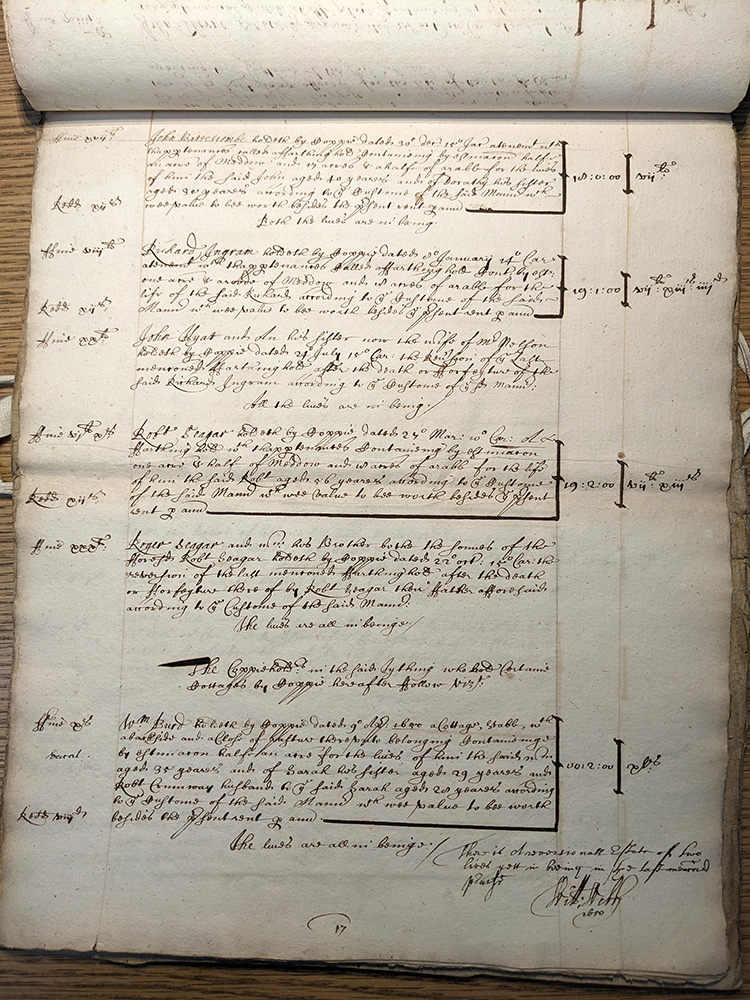 ffine xvij£
John Beedcombe holdeth by Coppie dated 30° Dec 15° Jac a tenement wth
thapptenances called a ffarthinghold Conteineing by estimacon half
an acre of Meddow and 17 acres & a half of arable for the lives
of him the said John aged 40 yeares and of Dorathy his sister
aged 30 yeares according to ye Custome of the said Mannor wch
Redd xijs
wee value to bee worth besides the psent rent p ann
18:0:00
vij£
Both the lives are in being
ffine viij£
Richard Ingram holdeth by Coppie dated 8° January 14° Car: a
tenement wth thapptenances Called a ffarthing hold Cont: by est:
one acre & a roode of Meddow and 18 acres of arable for the
life of the said Richard according to ye Custome of the said
Redd xijs
Mannor wch wee value to bee worth besides ye psent rent p ann
19:1:00
vij£ xiijs iiijd
ffine xx£
John Hyat and An his sister now the wife of Mr Nelson
holdeth by Coppie dated 24 July 15° Car: the Revision of ye last
mentioned ffarthinghold after the death or fforfeyture of the
said Richard Ingram according to ye Custome of ye sd Mannor:
All the lives are in being:
Robt Seagar holdeth by Coppie dated 27° Mar: 10° Car: A
ffarthing hold wth thapptenances Conteineing by estimacon
one acre & half of Meddow and 18 acres of arable for the life
of him the said Robt aged 56 yeares according to ye Custome
Redd xijs
of the said Mannor wch wee value to bee worth besides ye psent
rent p ann
19:2:00
ffine xxx£
Roger Seagar and Wm his Brother bothe the sonnes of the
fforesd Robt Seagar holdeth by Coppie dated 22° Oct: 15° Car: the
reversion of the last mentioned ffarthinghold after the death
or fforfeyture there of by Robt Seagar their ffather afforesaid
according to ye Custome of the said Mannor:
The lives are all in beinge
The Coppiehold in the said Tything who hold Certaine
Cottages by Coppie hereafter ffollow vizt
ffine xs
Wm Burd holdeth by Coppie dated 9° Apr: 1650 a Cottage, Stable, wth
a backside and a Close of pasture thereunto belonging Conteineinge
by estimacon half an acre for the lives of him the said Wm
aged 35 yeares and of Sarah his sister aged 29 yeares and
Robt Cunnway husband to ye said Sarah aged 28 yeares according
to ye Custome of the said Mannor wch wee value to bee worth
besides the psent rent p ann
00:2:00
xls
The lives are all in beinge
There is A reversionall Estate of two
lives yett in beeing in the last mentioned
1650
17